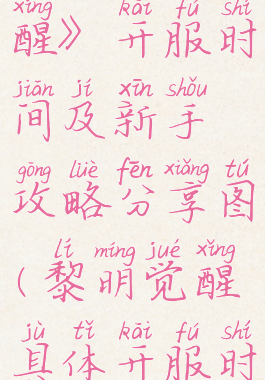 xǐng kāi fú shí
醒》 开服时
jiān jí xīn shǒu
间及新手
gōng lüè fēn xiǎng tú
攻略分享图
lí míng jué xǐng
(黎明觉醒
jù tǐ kāi fú shí
具体开服时